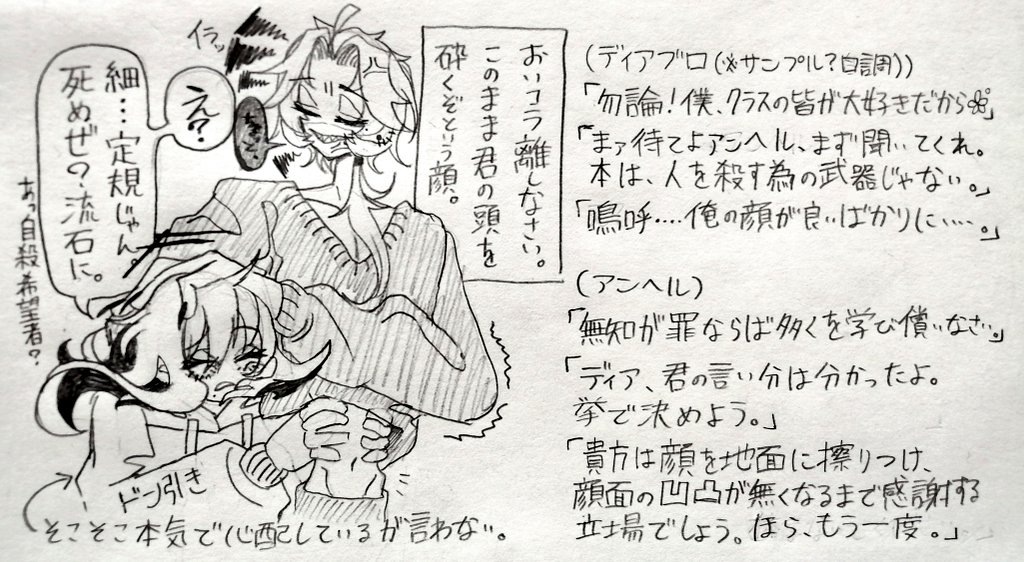 イラッ
え?
細…定規じゃん。
死めぜ?流石に。
あっ自殺希望者?
おいコラ離しなさい。
このまま君の頭を
砕くぞという顔。
ドン引き
そこそこ本気で心配しているが言わない。
(ディアブロ(※サンプル?自調))
「勿論!僕、クラスの皆が大好きだから
「まァ待てよアンヘル、まず聞いてくれ。
本は、人を殺す為の武器じゃない。」
「嗚呼‥‥俺の顔が良いばかりに‥‥。」
(アンヘル)
「無知が罪ならば多くを学び償いなさい。」
「ディア、君の言い分は分かったよ。
拳で決めよう。」
「貴方は顔を地面に擦りつけ、
顔面の凹凸が無くなるまで感謝する
立場でしょう。ほら、もう一度。」